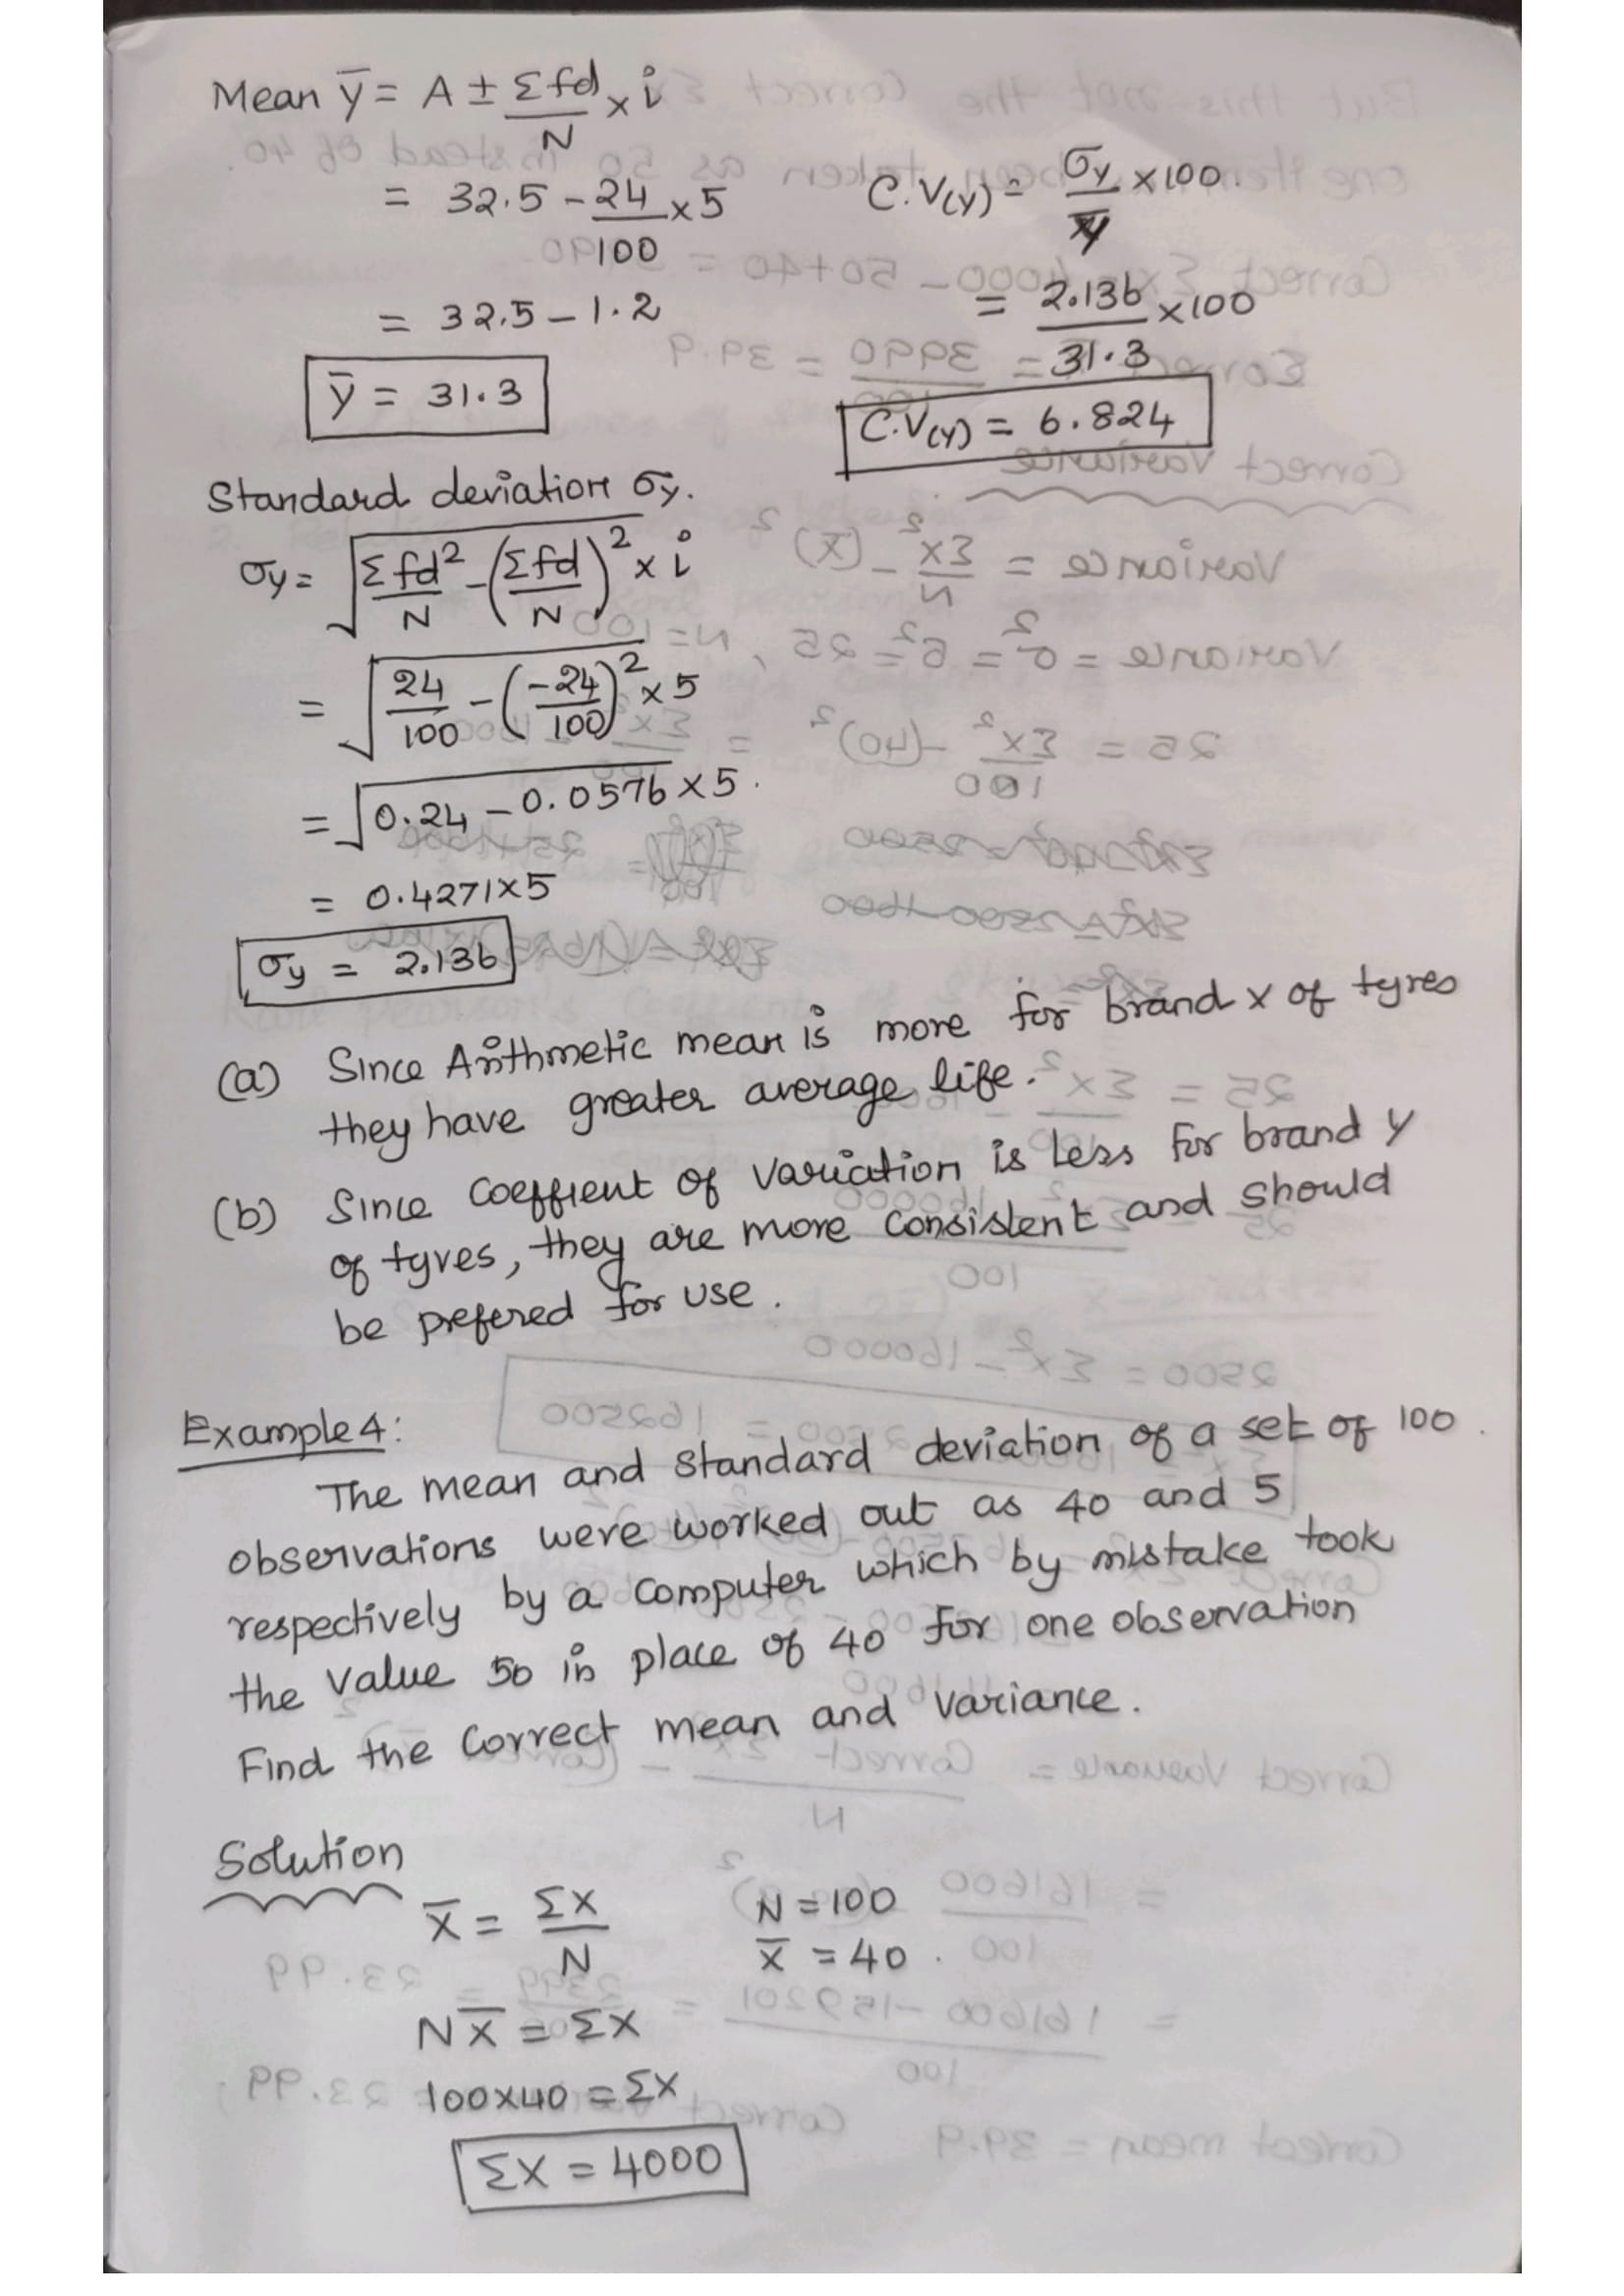 Mean ȳ = A ± Σfd/N × i
= 32.5 - 24/100 × 5
= 32.5 - 1.2
ȳ = 31.3
C.V(y) = σy/ȳ × 100.
= 2.136/31.3 × 100
C.V(y) = 6.824
Standard deviation σy.
σy = √(Σfd²/N - (Σfd/N)²) × i
= √(24/100 - (-24/100)²) × 5
= √(0.24 - 0.0576) × 5.
= 0.4271 × 5
σy = 2.136
(a) Since Arithmetic mean is more for brand X of tyres
they have greater average life.
(b) Since Coeffient of Variation is less for brand Y
of tyres, they are more consistent and should
be prefered for use.
Example 4:
The mean and standard deviation of a set of 100.
observations were worked out as 40 and 5
respectively by a computer which by mistake took
the value 50 in place of 40 for one observation
Find the correct mean and variance.
Solution
X̄ = ΣX/N N = 100
X̄ = 40.
NX̄ = ΣX
100×40 = ΣX
ΣX = 4000